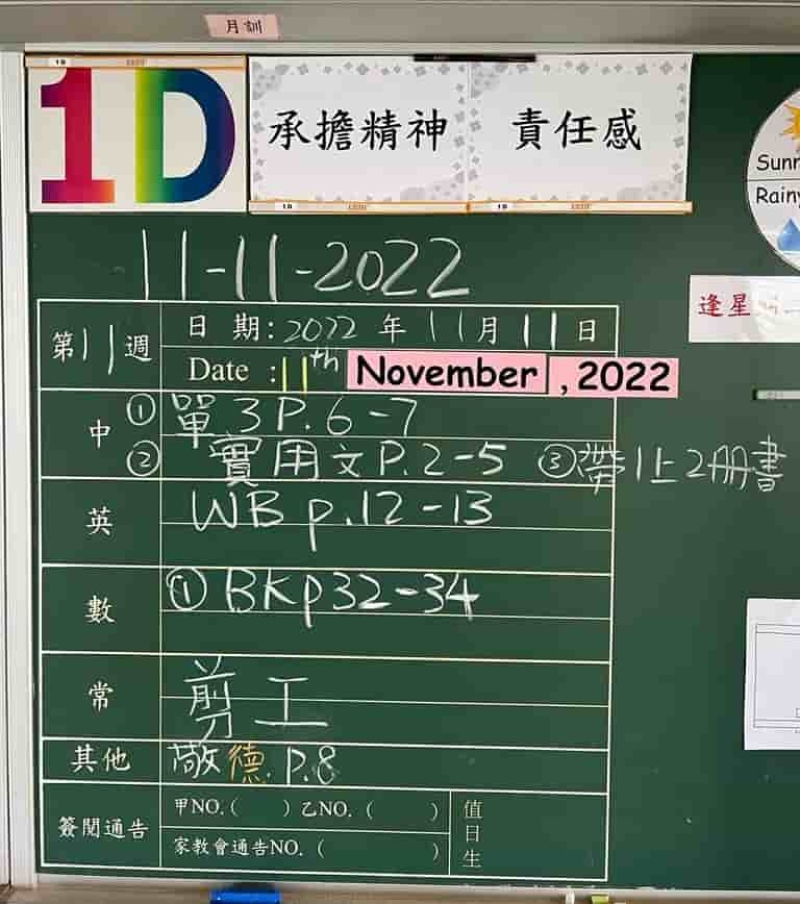 月訓
1D
承擔精神
責任感
Sunn
Rainy
11-11-2022
逢星
第11週
日期:2022年11月11日
Date :11th November , 2022
中 ①單3P.6-7
②實用文P.2-5 ③帶1上2冊書
英 WB p.12-13
數 ①BKp32-34
常 剪工
其他 敬德.P.8
簽閱通告 甲NO.( ) 乙NO.( )
家教會通告NO.( )
值日生